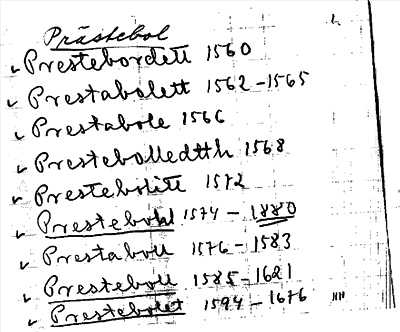 Prästebol
Prestebordett 1560
Prestabolett 1562-1565
Prestabole 1566
Prestebolledtth 1568
Prestebolitt 1572
Prestebohl 1574 - 1880
Prestaboll 1576 - 1583
Presteboll 1585-1621
Prestebolet 1594-1676